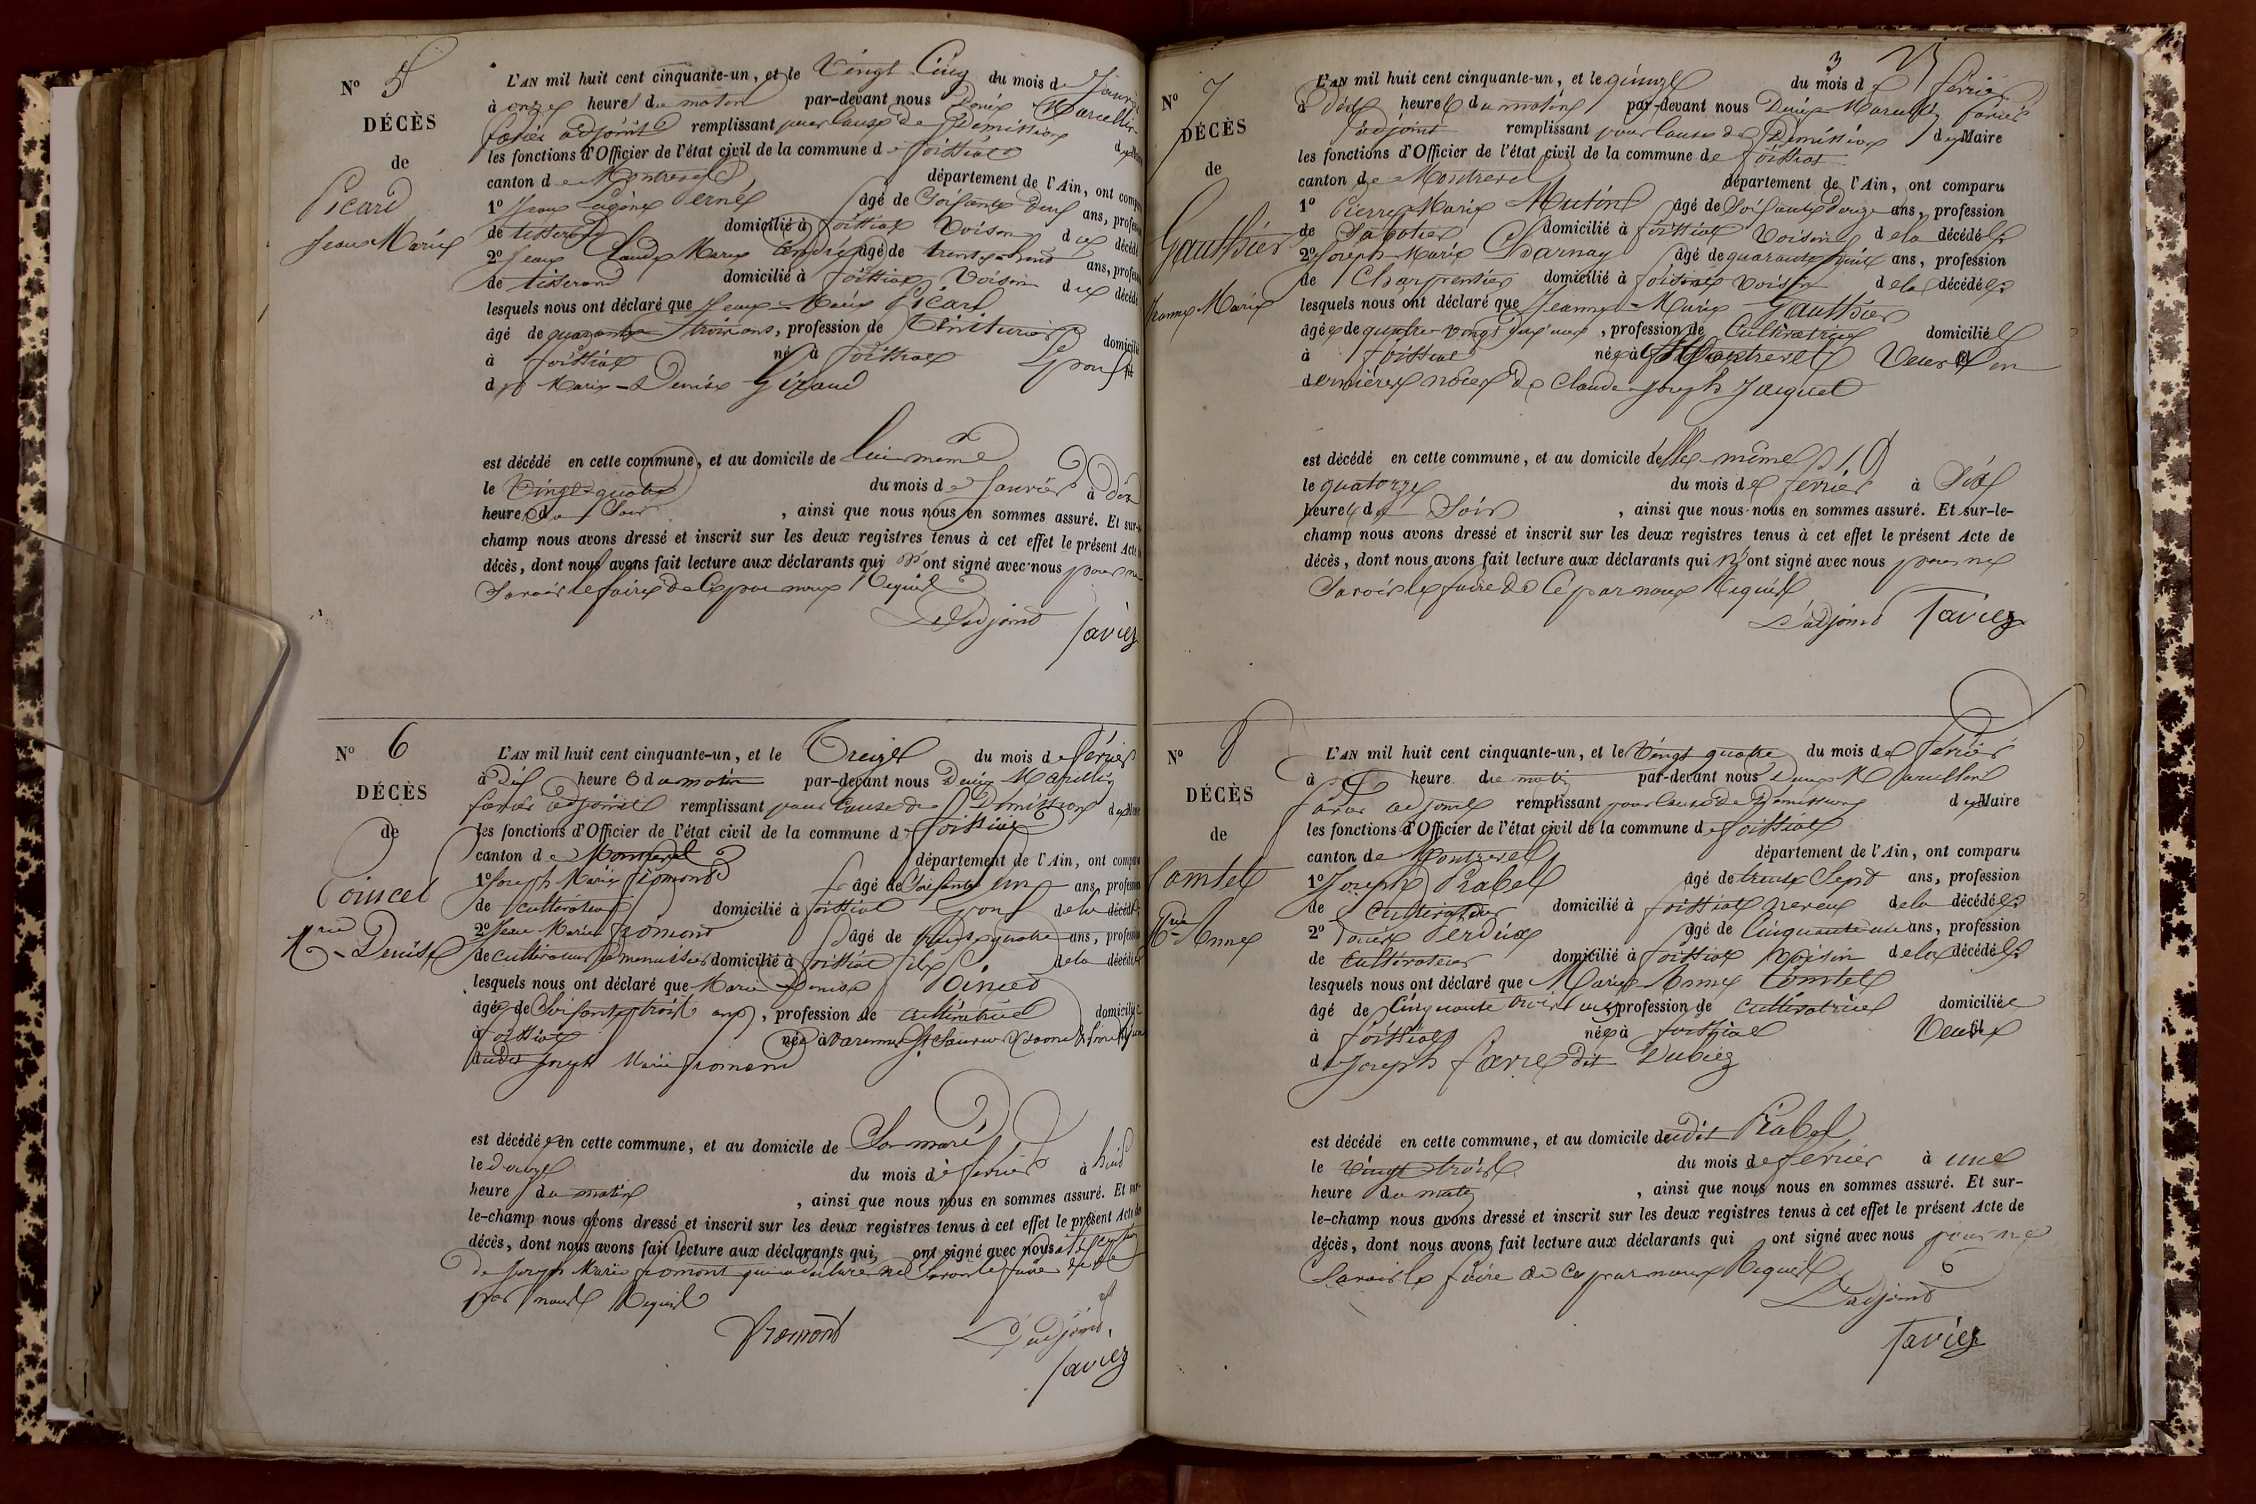 N° 5
DÉCÈS
de
Picard
Jean Marie
L'AN mil huit cent cinquante-un, et le Vingt Cinq du mois de Janvier
à onze heures du matin par-devant nous Denis Marcellin
favier adjoint remplissant pour Cause de Démission du Maire
les fonctions d'Officier de l'état civil de la commune de foissiat
canton de Montrevel département de l'Ain, ont comparu
1° Jean Perné âgé de Soixante Deux ans, profession
de tisserand domicilié à foissiat Voisin du décédé
2° Jean Claude Marie âgé de trente ans, profession
de tisserand domicilié à foissiat Voisin du décédé
lesquels nous ont déclaré que Jean Marie Picard
âgé de quarante trois ans, profession de teinturier domicilié
à foissiat né à foissiat Epoux
de Marie Denise Giraud
est décédé en cette commune, et au domicile de lui même
le Vingt quatre du mois de Janvier à dix
heure du Soir, ainsi que nous nous en sommes assuré. Et sur-le-
champ nous avons dressé et inscrit sur les deux registres tenus à cet effet le présent Acte de
décès, dont nous avons fait lecture aux déclarants qui n'ont signé avec nous pour ne
Savoir le faire de Ce par nous Requis
L'adjoint favier
N° 6
DÉCÈS
de
Poincet
Mrie Denise
L'AN mil huit cent cinquante-un, et le Treize du mois de février
à dix heures du matin par-devant nous Denis Marcellin
favier adjoint remplissant pour Cause de Démission du Maire
les fonctions d'Officier de l'état civil de la commune de foissiat
canton de Montrevel département de l'Ain, ont comparu
1° Joseph Marie fromond âgé de Soixante un ans, profession
de cultivateur domicilié à foissiat Epoux de la décédée
2° Jean Marie fromond âgé de trente quatre ans, profession
de cultivateur & menuisier domicilié à foissiat fils de la décédée
lesquels nous ont déclaré que Marie Denise Poincet
âgée de Soixante trois ans, profession de cultivatrice domiciliée
à foissiat née à varenne St Sauveur
dudit Joseph Marie fromond
est décédée en cette commune, et au domicile de Son mari
le douze du mois de février à huit
heure du matin, ainsi que nous nous en sommes assuré. Et sur-
le-champ nous avons dressé et inscrit sur les deux registres tenus à cet effet le présent Acte de
décès, dont nous avons fait lecture aux déclarants qui ont signé avec nous
de Joseph Marie fromont qui a déclaré ne Savoir le faire de Ce
par nous Requis
fromond L'adjoint
favier
3
N° 7
DÉCÈS
de
Gauthier
Jeanne Marie
L'AN mil huit cent cinquante-un, et le quinze du mois de février
à dix heures du matin par-devant nous Denis Marcellin favier
adjoint remplissant pour Cause de Démission du Maire
les fonctions d'Officier de l'état civil de la commune de foissiat
canton de Montrevel département de l'Ain, ont comparu
1° Pierre Marie Mutin âgé de Soixante Douze ans, profession
de Sabotier domicilié à foissiat Voisin de la décédée
2° Joseph Marie Charnay âgé de quarante huit ans, profession
de Charpentier domicilié à foissiat Voisin de la décédée
lesquels nous ont déclaré que Jeanne Marie Gauthier
âgée de quatre vingt deux ans, profession de Cultivatrice domiciliée
à foissiat née à Montrevel Veuve en
dernières noces de Claude Joseph Jacquet
est décédé en cette commune, et au domicile d'elle même
le quatorze du mois de février à Six
heures du Soir, ainsi que nous nous en sommes assuré. Et sur-le-
champ nous avons dressé et inscrit sur les deux registres tenus à cet effet le présent Acte de
décès, dont nous avons fait lecture aux déclarants qui n'ont signé avec nous pour ne
Savoir le faire de Ce par nous Requis
L'adjoint favier
N° 8
DÉCÈS
de
Comtet
Mrie Anne
L'AN mil huit cent cinquante-un, et le Vingt quatre du mois de février
à heure du matin par-devant nous Denis Marcellin
favier adjoint remplissant pour Cause de Démission du Maire
les fonctions d'Officier de l'état civil de la commune de foissiat
canton de Montrevel département de l'Ain, ont comparu
1° Joseph Rabel âgé de trente Sept ans, profession
de cultivateur domicilié à foissiat neveu de la décédée
2° Denis Perdrix âgé de Cinquante un ans, profession
de cultivateur domicilié à foissiat voisin de la décédée
lesquels nous ont déclaré que Marie Anne Comtet
âgé de Cinquante trois ans profession de cultivatrice domiciliée
à foissiat née à foissiat Veuve
de Joseph favre dit Dubiez
est décédé en cette commune, et au domicile dudit Rabel
le Vingt trois du mois de février à une
heure du matin, ainsi que nous nous en sommes assuré. Et sur-
le-champ nous avons dressé et inscrit sur les deux registres tenus à cet effet le présent Acte de
décès, dont nous avons fait lecture aux déclarants qui ont signé avec nous pour ne
Savoir le faire de Ce par nous Requis
L'adjoint
favier